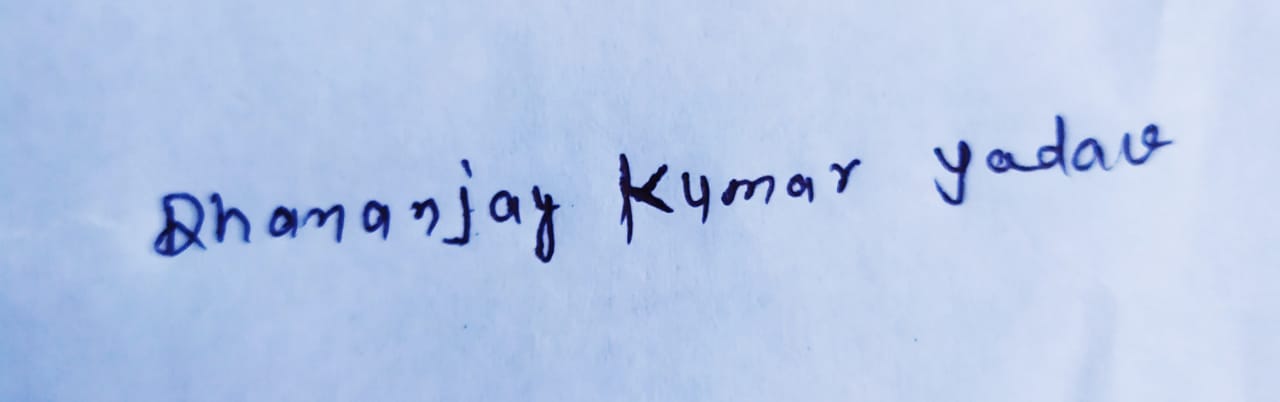 Dhananjay Kumar yadav